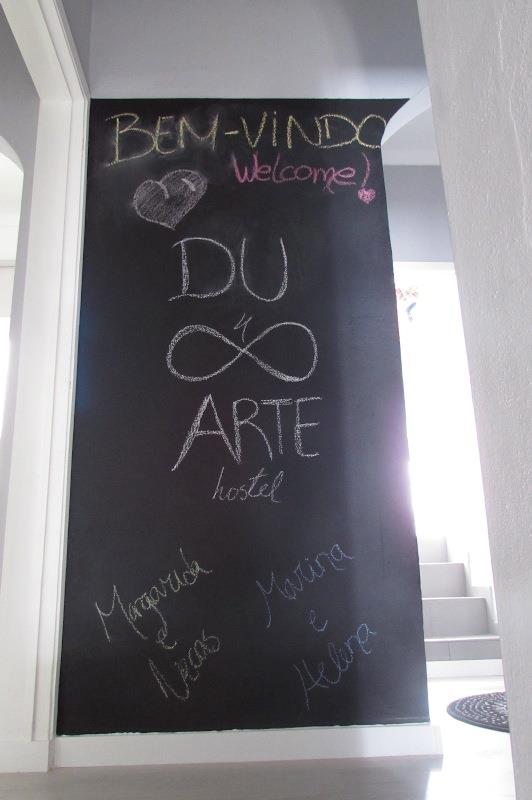 BEM-VINDO
Welcome!
DU
ARTE
hostel
Margarida
e
Necas
Marina
e
Helena